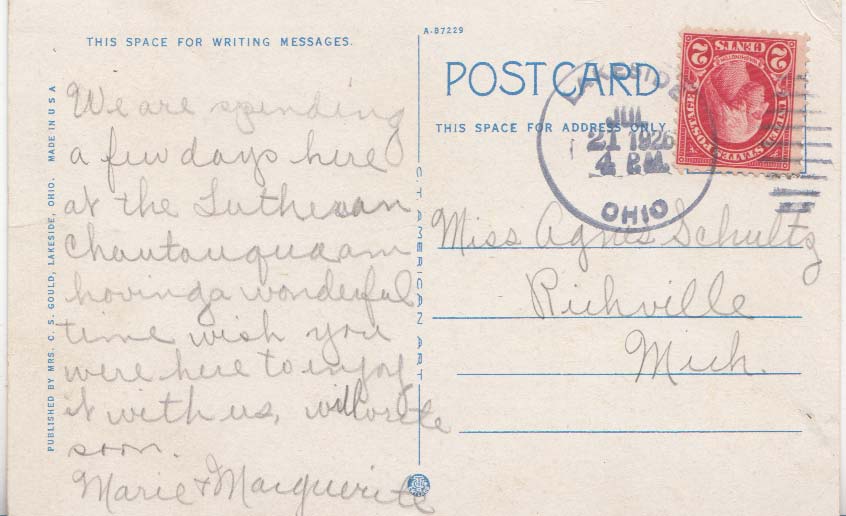 THIS SPACE FOR WRITING MESSAGES.
We are spending
a few days here
at the Lutheran
Chautauqua am
having a wonderful
time wish you
were here to injoy
it with us, will write
soon.
Marie & Marguerite
PUBLISHED BY MRS. C. S. GOULD, LAKESIDE, OHIO. MADE IN U S A
C. T. AMERICAN ART
A-87229
POST CARD
THIS SPACE FOR ADDRESS ONLY
LAKESIDE
JUL
21 1926
4 P.M.
OHIO
UNITED STATES POSTAGE
WASHINGTON
2 CENTS 2
Miss Agnes Schultz
Richville
Mich.